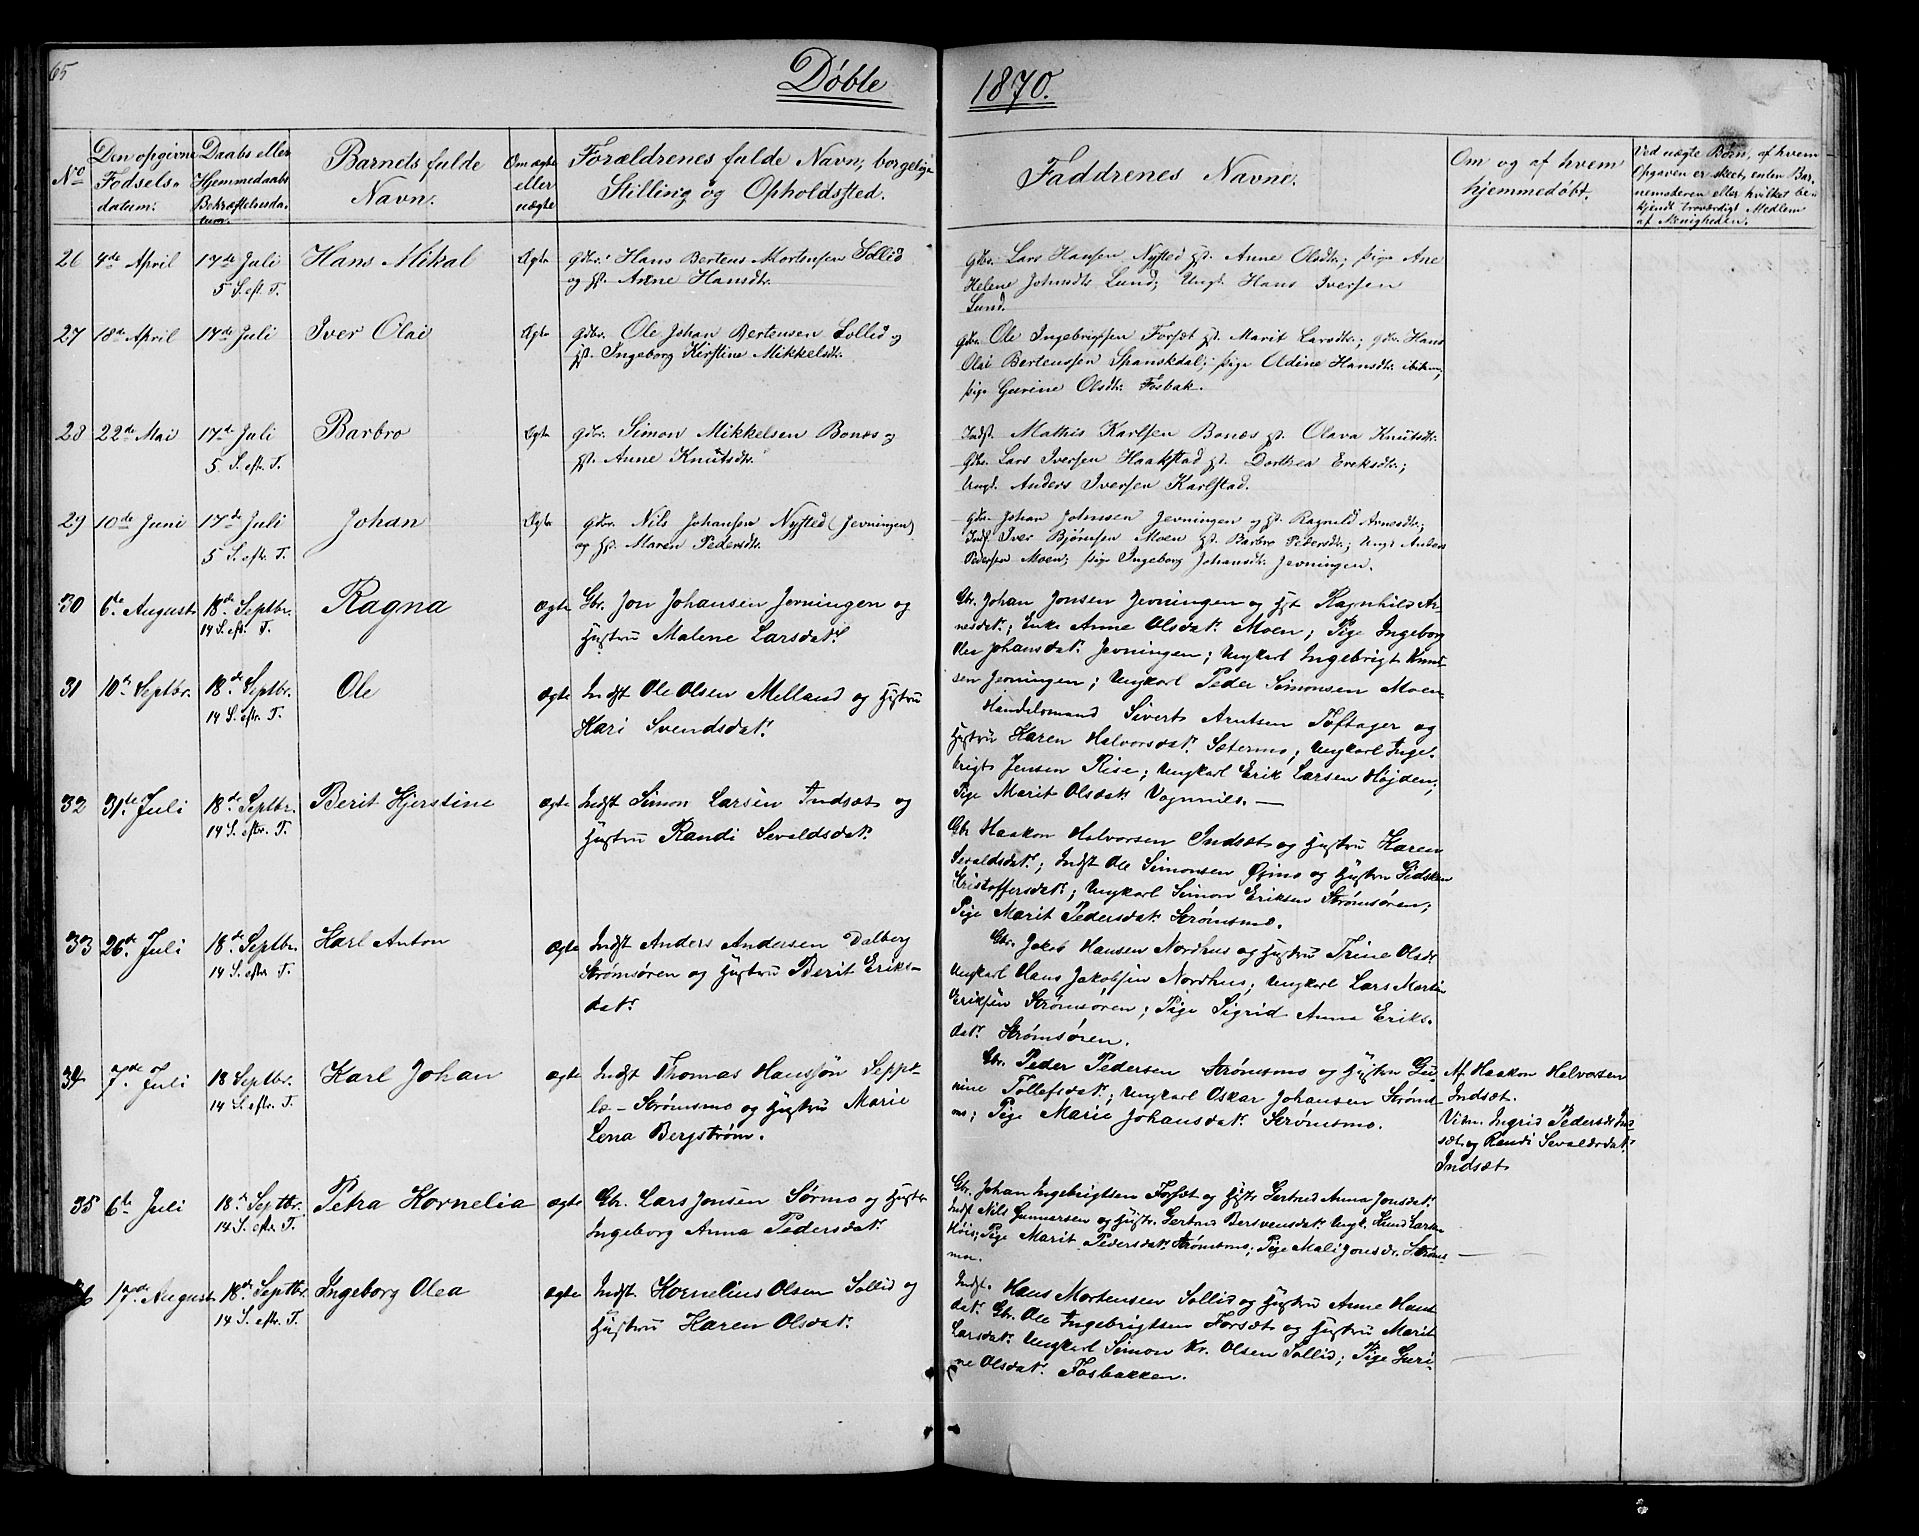 65
Døbte
1870.
No
Den opgivne Fødsels-datum.
Daabs eller Hjemmedaabs Bekræftelsesdatum.
Barnets fulde Navn.
Om ægte eller uægte
Forældrenes fulde Navn, borgelige Stilling og Opholdssted.
Faddrenes Navne.
Om og af hvem hjemmedøbt.
Ved uægte Børn, af hvem
Opgaven er skeet, enten Bar-
nemoderen eller hvilket be-
kjendt troværdigt Medlem
af Menigheden.
26 4de April 17de Juli Hans Mikal Ægte Gbr. Hans Bertens Mortensen Sollid
5 S. eft. T. og H. Anne Hansdtr.
Gbr. Lars Hansen Nysted H. Anne Olsdtr; Pige Ane
Helene Johnsdtr Lund; Ungk. Hans Iversen
Lund.
27 18de April 17de Juli Iver Olai Ægte Gbr. Ole Johan Bertensen Sollid og
H. Ingeborg Kirstine Mikkelsdtr.
Gbr. Ole Ingebrigtsen Forset H. Marit Larsdtr; Gbr. Hans
Olai Bertensen Spanskdal; Pige Udine Hansdtr ibidem;
Pige Gurine Olsdtr Fosbak.
28 22de Mai 17de Juli Barbro Ægte Gbr. Simon Mikkelsen Bonæs og
5 S. eftr. T. H. Anne Knutsdtr.
Indst. Mathis Karlsen Bonæs H. Olava Knutsdtr.
Gbr. Lars Iversen Haakstad H. Dorthea Eriksdtr;
Ungk. Anders Iversen Karlstad.
29 10de Juni 17de Juli Johan Ægte Gbr. Nils Johansen Nysted (Jevningen)
5 S. eftr. T. og H. Maren Pedersdtr.
Gbr. Johan Johnsen Jevningen og H. Ragnild Arnesdtr;
Inds. Iver Bjørnsen Moen H. Barbro Pedersdtr; Ungk Anders
Pedersen Moen; Pige Ingeborg Johansdtr. Jevningen.
30 6te August 18de Septbr. Ragna Ægte Gbr. Jon Johansen Jevningen og
14 S. eft. T. Hustru Malene Larsdatr
Gbr. Johan Jonsen Jevningen og Hst Ragnhild Ar-
nesdatr; Enke Anne Olsdatr Moen; Pige Ingeborg
Johansdatr Jevningen; Ungkarl Ingebrigt Knud-
sen Jevningen; Ungkarl Peder Simonsen Moen
31 10de Septbr. 18de Septbr. Ole ægte Indst Ole Olsen Melland og Hustru
14 S. eftr. T. Kari Svendsdatr
Handelsmand Sivert Arntsen Toftager og
Hustru Karen Halvorsdatr Sætermo; Ungkarl Inge-
brigt Jensen Rise; Ungkarl Erik Larsen Højden;
Pige Marit Olsdatr Vognnils. —
32 31te Juli 18de Septbr. Berit Kjerstine ægte Indst Simon Larsen Indsæt og
14 S. eftr. T. Hustru Randi Sevaldsdatr
Gbr Haakon Halvorsen Indsæt og Hustru Karen
Sevaldsdatr; Indst Ole Simonsen Øimo og Hustru Gidsken
Kristoffersdatr; Ungkarl Simon Eriksen Strømsøren;
Pige Marit Pedersdatr Strømsmo.
33 26de Juli 18de Septbr Karl Anton ægte Indst Anders Andersen Dalberg
14 S. eftr. T. Strømsøren og Hustru Berit Eriks-
datr
Gbr. Jakob Hansen Nordhus og Hustru Trine Olsdtr
Ungkarl Hans Jakobsen Nordhus; Ungkarl Lars Martin
Eriksen Strømsøren; Pige Sigrid Anna Eriks-
datr Strømsøren.
34 7de Juli 18 Septbr. Karl Johan ægte Indst Thomas Hansjøn Seppe-
14 S. eftr. T. læ - Strømsmo og Hustru Marie
Lena Bergstrøm.
Gbr. Peder Pedersen Strømsmo og Hustru Gu-
nine Tollefsdatr; Ungkarl Oskar Johansen Strøms-
mo; Pige Marie Johansdatr Strømsmo.
Af Haakon Halvorsen
Indsæt.
Vidn. Ingrid Pedersdtr Ind-
sæt og Randi Sevaldsdatr
Indsæt
35 6te Juli 18de Septbr. Petra Kornelia ægte Gbr. Lars Jonsen Sørmo og Hustru
14 S. eftr. T. Ingeborg Anna Pedersdatr
Gbr. Johan Ingebrigtsen Forsæt og Hustr Gertrud Anna Jonsdatr.
Indst Nils Gunnarsen og Hustr. Gertrud Bersvensdatr. Ungk. Knud Larsen
Høis; Pige Marit Pedersdatr Strømsmo; Pige Mali Jonsdr. Strøms-
mo.
36 17de August 18de Septbr Ingeborg Olea ægte Indst Kornelius Olsen Sollid og
14 S. eftr. T. Hustru Karen Olsdatr.
Indst. Hans Mortensen Sollid og Hustru Anne Hans-
datr Gbr. Ole Ingebrigtsen Forsæt og Hustru Marit
Larsdatr Ungkarl Simon Kr. Olsen Sollid; Pige Guri-
ne Olsdatr. Fosbakken.